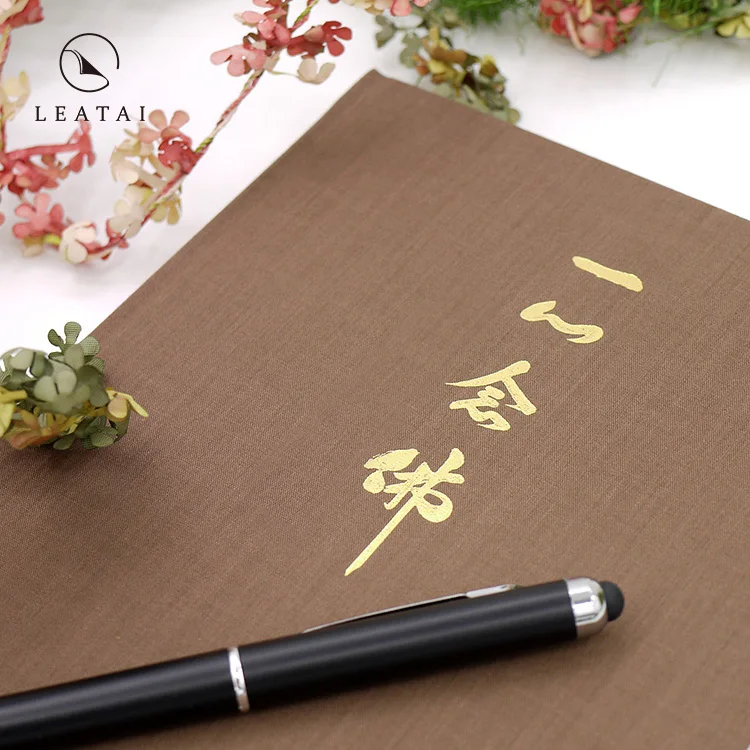 LEATAI
一心念佛